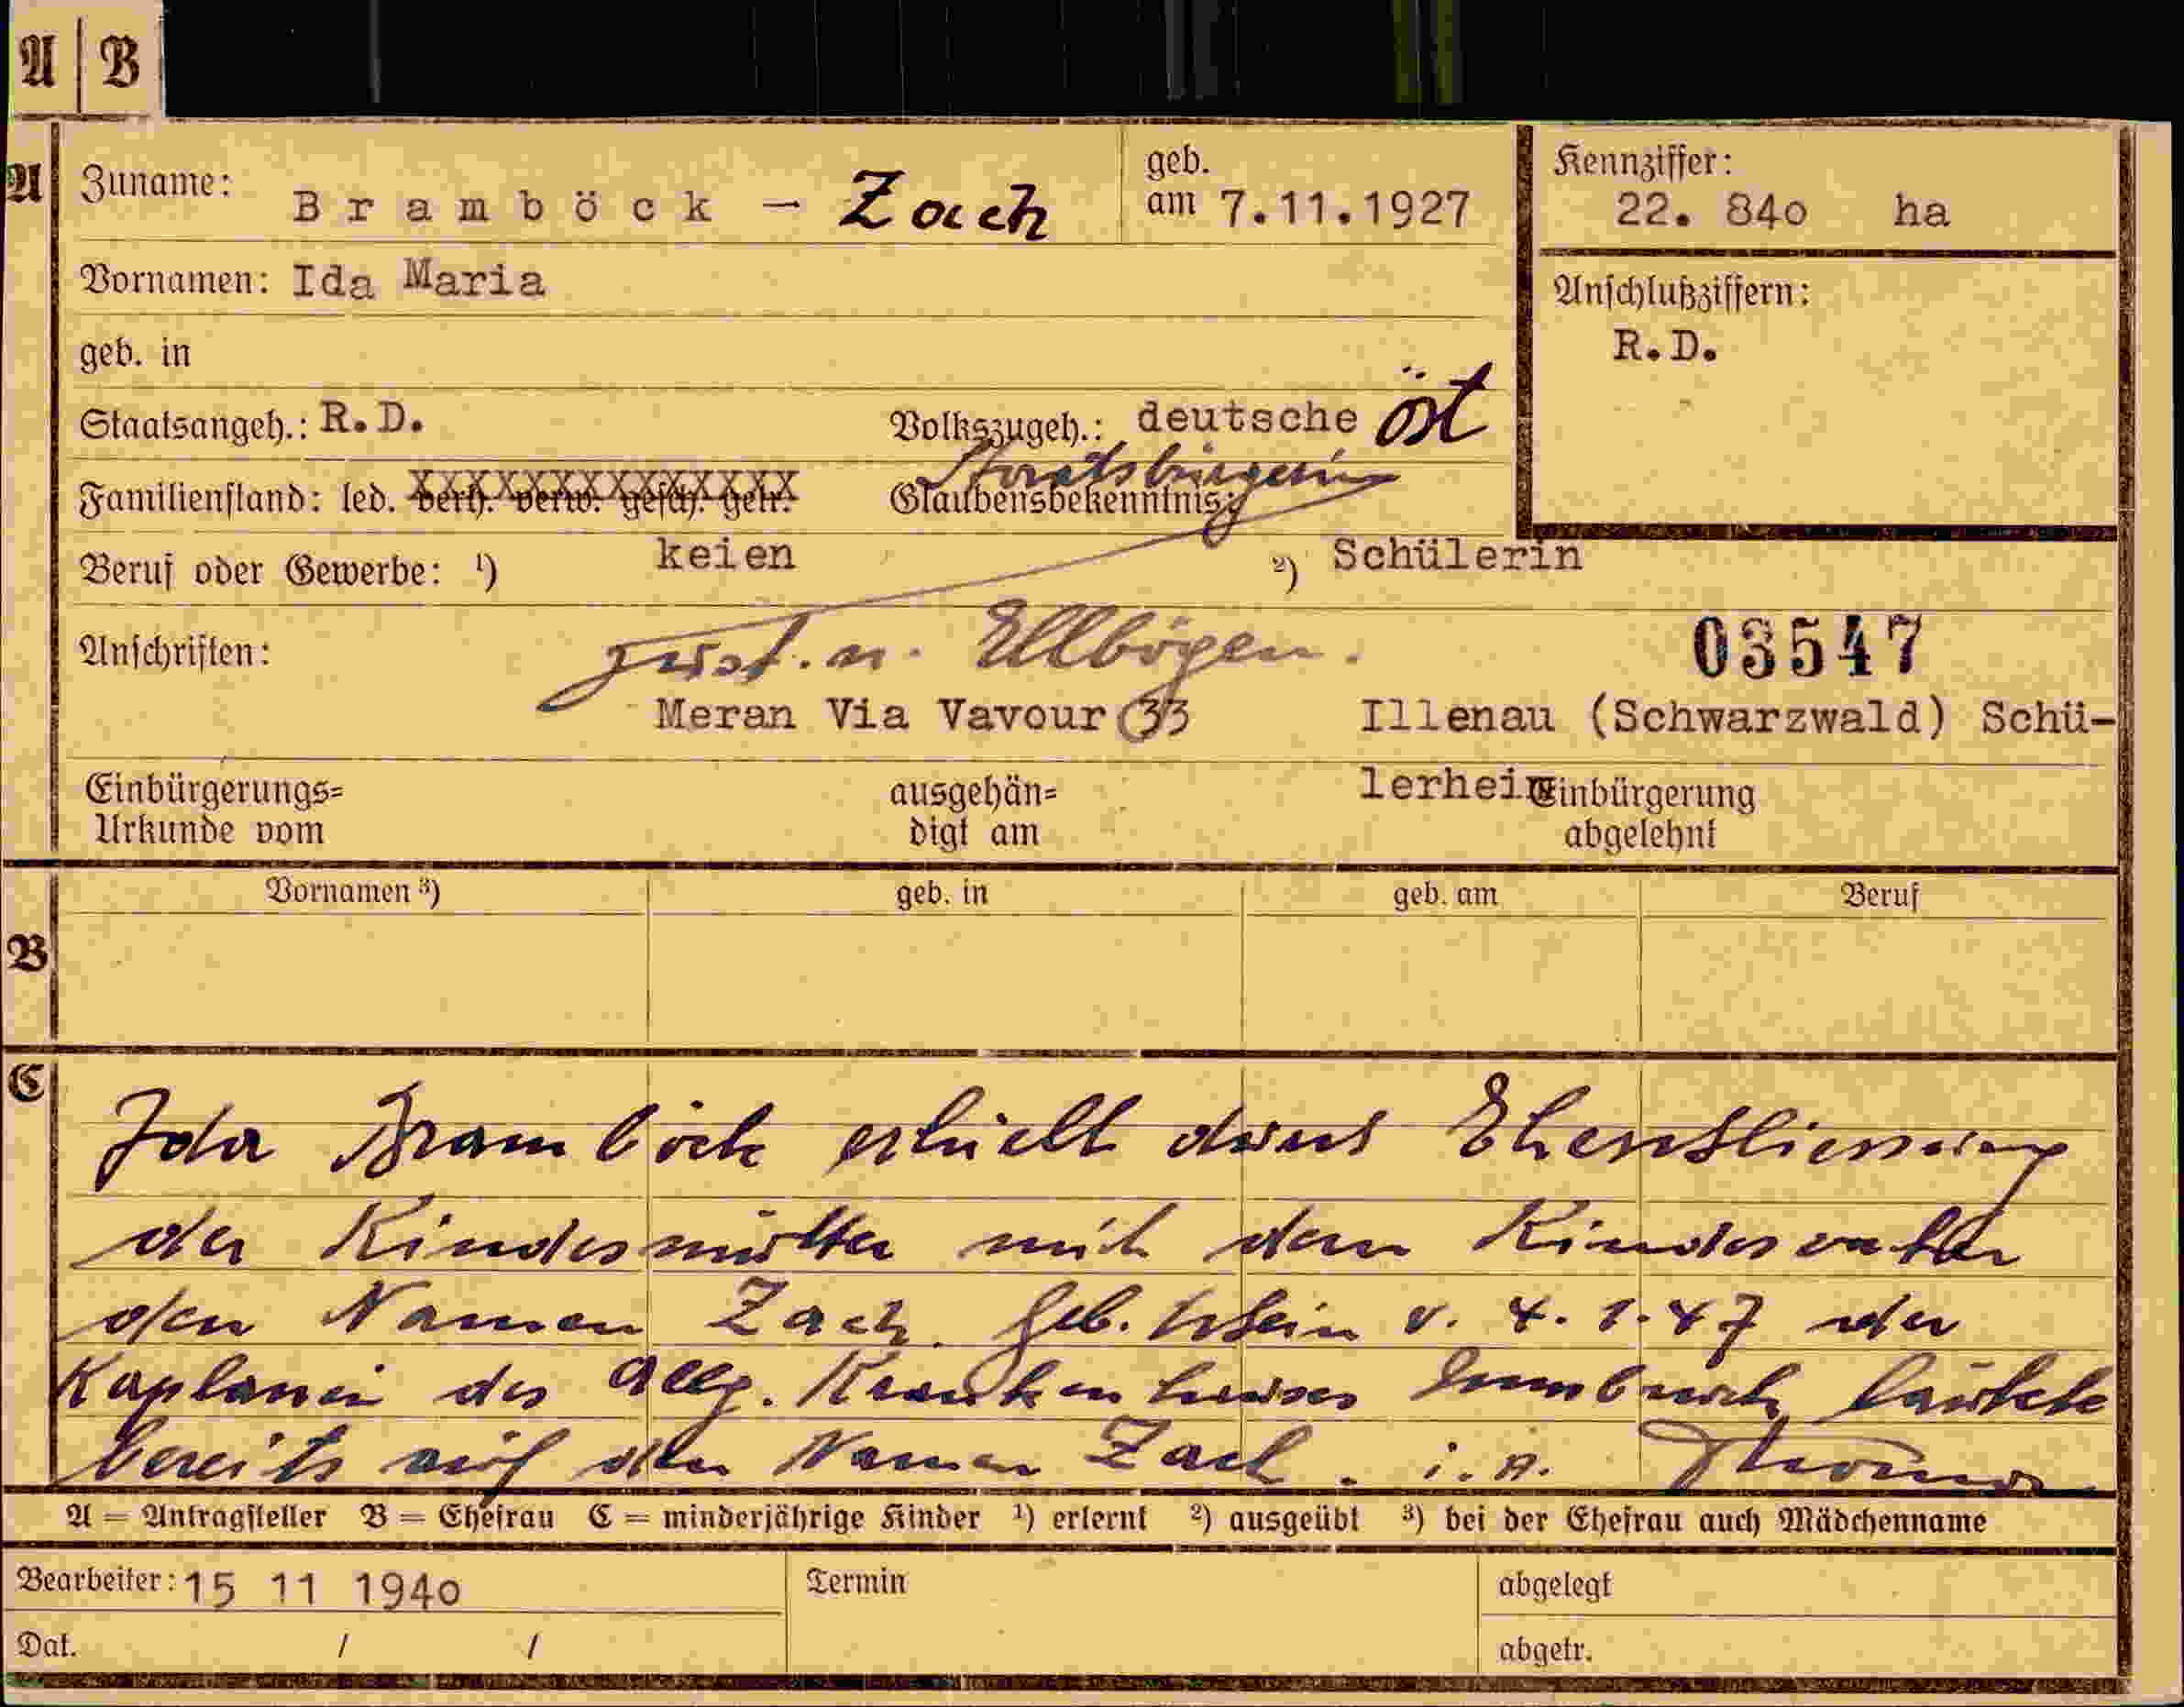 A | B
A
Zuname: Bramböck - Zach
geb. am 7.11.1927
Kennziffer: 22. 840 ha
Vornamen: Ida Maria
Anschlußziffern:
R.D.
geb. in
Staatsangeh.: R.D. Volkszugeh.: deutsche öst
Staatsbürgerin
Familienstand: led. verh. verw. gesch. getr. Glaubensbekenntnis:
Beruf oder Gewerbe: ¹) keien ²) Schülerin
Anschriften: zust. n. Ellbögen. 03547
Meran Via Vavour 33 Illenau (Schwarzwald) Schü-
lerheim
Einbürgerungs= ausgehän= Einbürgerung
Urkunde vom digt am abgelehnt
Vornamen ³) geb. in geb. am Beruf
B
C
Ida Bramböck erhielt durch Eheschliessung
der Kindesmutter mit dem Kindesvater
den Namen Zach. Geb. Schein v. 4.1.47 der
Kaplanei des Allg. Krankenhauses Innsbruck lautete
bereits auf den Namen Zach. i.A.
A = Antragsteller B = Ehefrau C = minderjährige Kinder ¹) erlernt ²) ausgeübt ³) bei der Ehefrau auch Mädchenname
Bearbeiter: 15 11 1940 Termin abgelegt
Dat. / / abgetr.